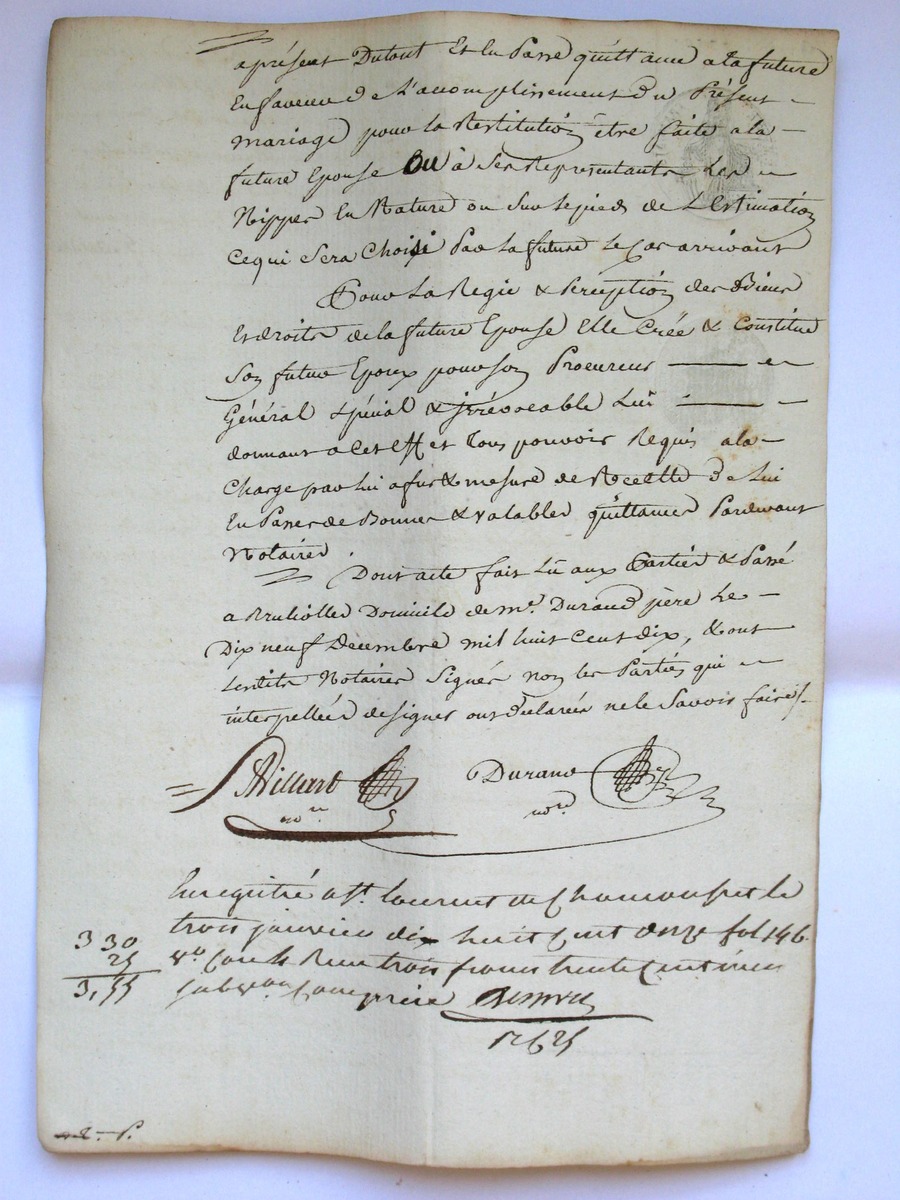 aprésent Dutout Et En Passe quittance ala future
En faveur de L'accomplissement du Présent
mariage pour la Restitution être faite ala
future Epouse ou à Ses Representants Les
Nippes En Nature ou Sur Lepied de L'Estimation
cequi Sera Choisi Par La future le Cas arrivant
Pour La Regie & Perception des Biens
Et droits dela future Epouse Elle Créé & Constitue
Son futur Epoux pour son Procureur
Général Spécial & jrrévocable Lui
donnant a Cet Effet Tous pouvoir Requis ala
Charge par lui afur & mesure de Recette De Lui
En Passer de Bonnes & valables quittances Pardevant
Notaires .
Dont acte fait Lû aux Parties & Passé
a Domicile de mr. Durand père Le
Dix neuf Decembre mil huit Cent dix, & ont
Lesdits Notaires Signés non les Parties qui
interpellées de signer ont Déclarées nele Savoir faire /.
Durand
nore
Enregistré a St. Laurent de Chamousset le
trois janvier dix huit Cent onze fol 146
vo Case Reçu trois francs trente Centimes
330
25
3,55
subvon Comprise